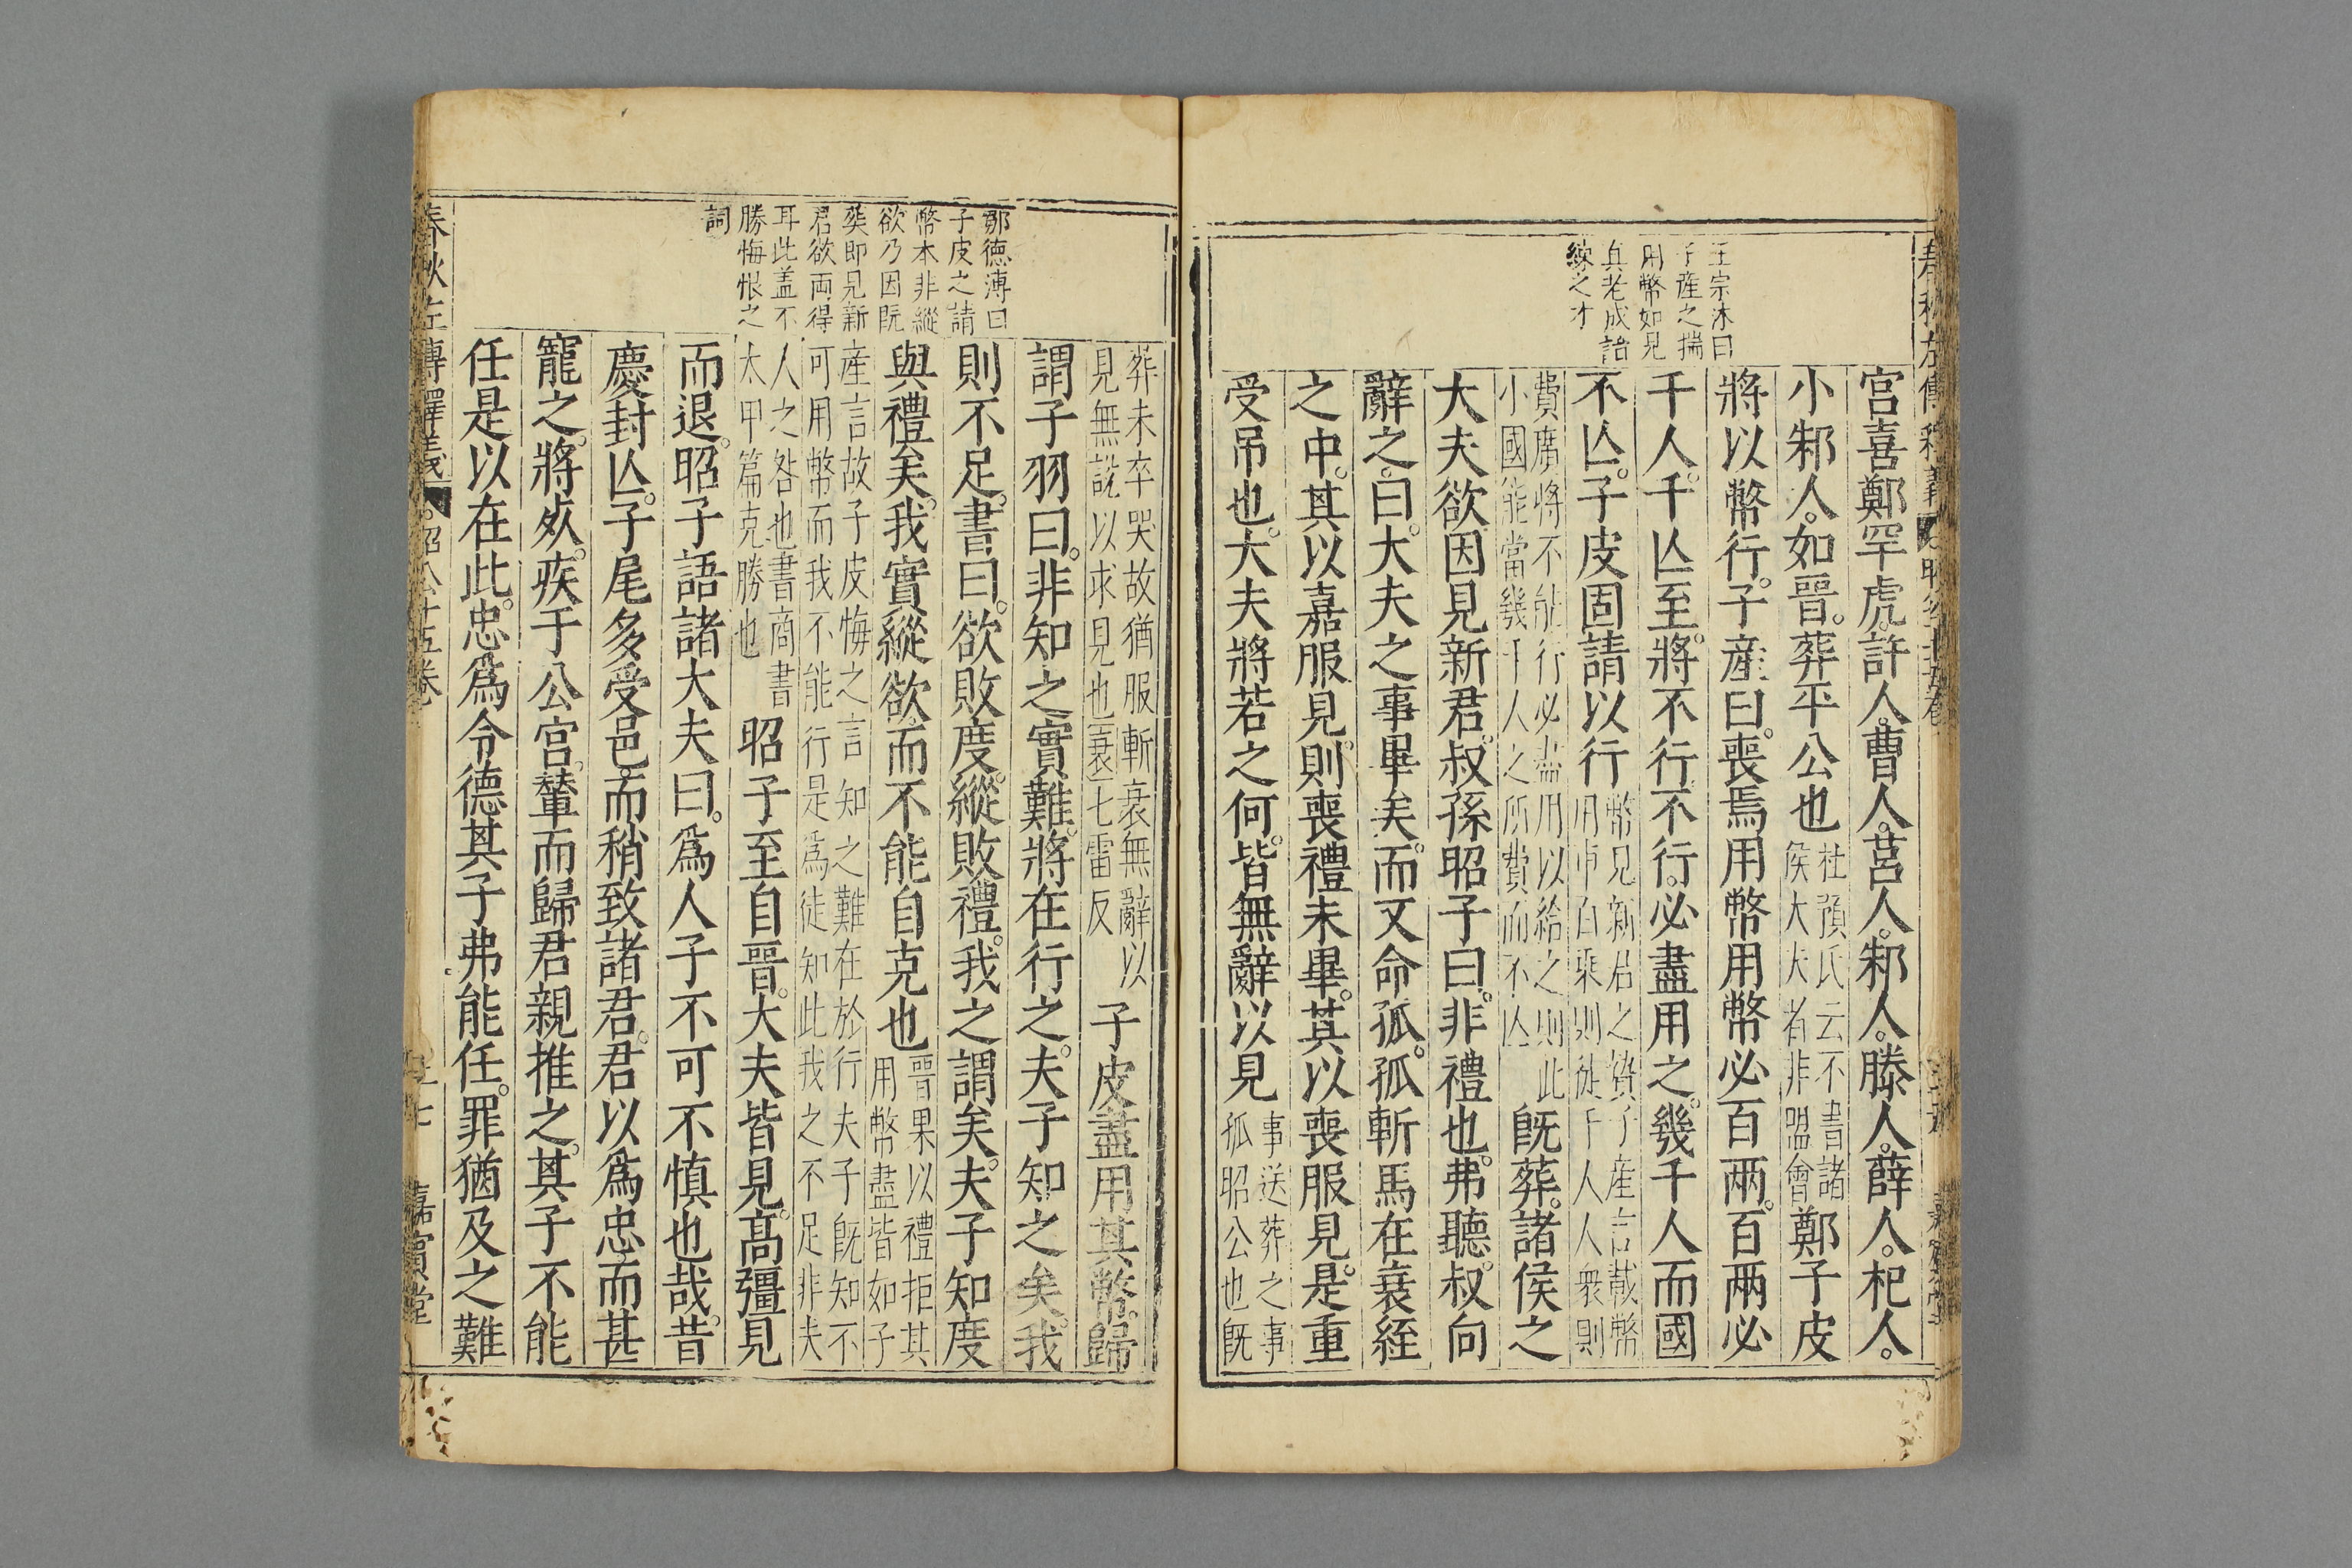 王宗沐曰
子產之揣
用幣如見
眞老成諳
練之才
宮喜鄭罕虎許人曹人莒人邾人滕人薛人杞人
小邾人如晉葬平公也
杜預氏云不書諸
侯大夫者非盟會
鄭子皮
將以幣行子產曰喪焉用幣用幣必百兩百兩必
千人千人至將不行不行必盡用之幾千人而國
不亾子皮固請以行
幣見新君之贄子產言載幣
用車百乘則徒千人人衆則
費廣將不能行必盡用以給之則此
小國能當幾千人之所費而不亾
旣葬諸侯之
大夫欲因見新君叔孫昭子曰非禮也弗聽叔向
辭之曰大夫之事畢矣而又命孤孤斬焉在衰絰
之中其以嘉服見則喪禮未畢其以喪服見是重
受弔也大夫將若之何皆無辭以見
事送葬之事
孤昭公也旣
鄒德溥曰
子皮之請
幣本非縱
欲乃因旣
葬即見新
君欲兩得
耳此盖不
勝悔恨之
詞
葬未卒哭故猶服斬衰無辭以
見無說以求見也衰七雷反
子皮盡用其幣歸
謂子羽曰非知之實難將在行之夫子知之矣我
則不足書曰欲敗度縱敗禮我之謂矣夫子知度
與禮矣我實縱欲而不能自克也
晉果以禮拒其
用幣盡皆如子
產言故子皮悔之言知之難在於行夫子旣知不
可用幣而我不能行是爲徒知此我之不足非夫
人之咎也書商書
太甲篇克勝也
昭子至自晉大夫皆見高彊見
而退昭子語諸大夫曰爲人子不可不慎也哉昔
慶封亾子尾多受邑而稍致諸君君以爲忠而甚
寵之將歿疾于公宮輦而歸君親推之其子不能
任是以在此忠爲令德其子弗能任罪猶及之難
春秋左傳釋義 昭公十五卷 嘉賓堂